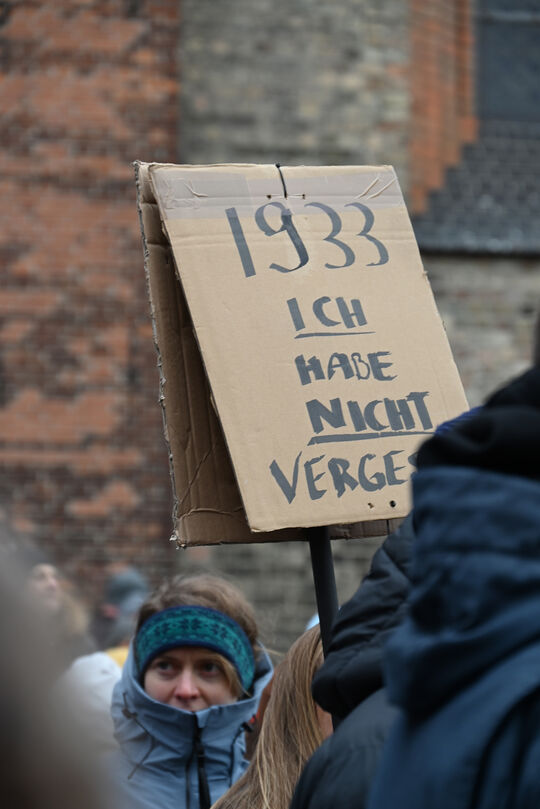 1933
ICH
HABE
NICHT
VERGES